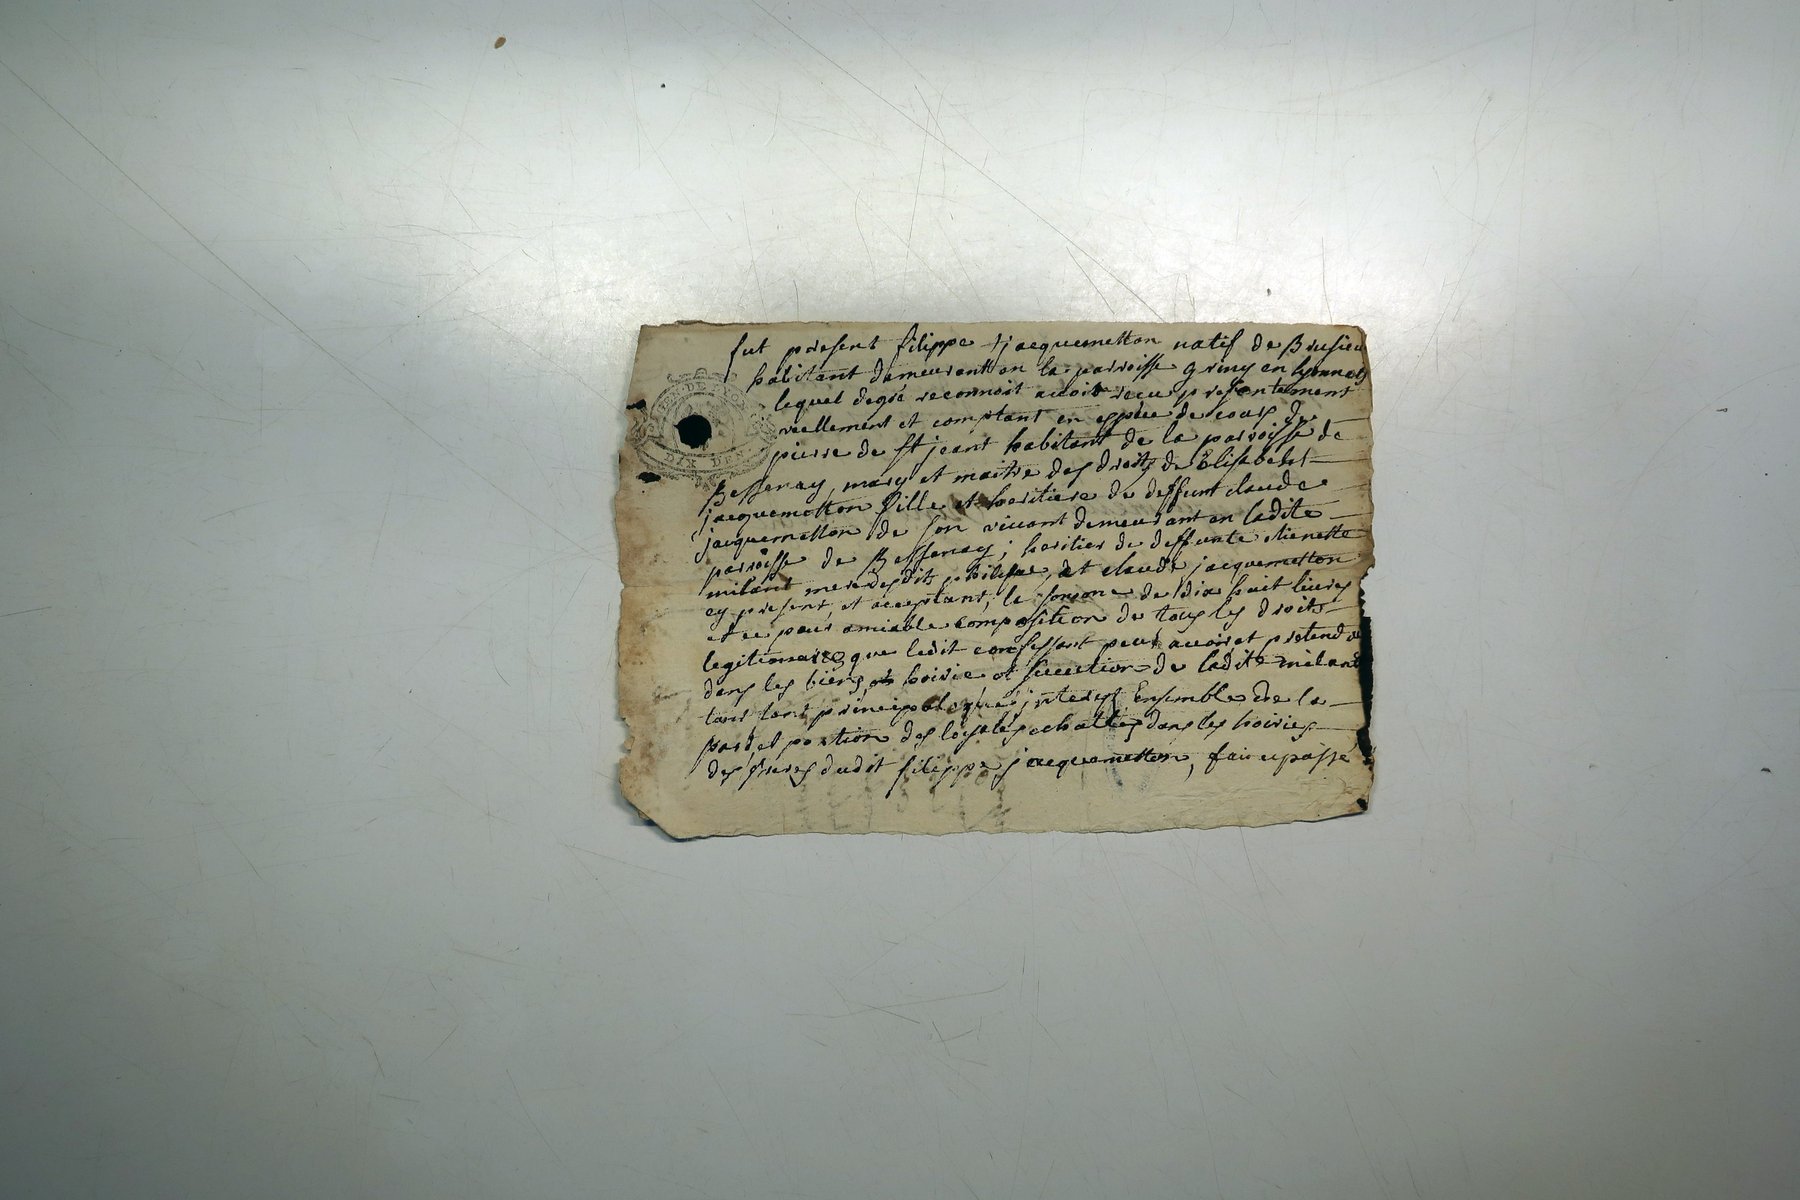 fut present filippe jacquemetton natif de Brusieu
habitant demeurant en la parroisse griny en lyonnois
lequel degré reconnoit avoir recu presentement
reellement et comptant en espece de cours de
pierre de st jeant habitant de la parroisse de
Bessenay, mary et maitre des droits de Elisabeht
jacquemetton fille et heritiere de deffunt claude
jacquemetton de son vivant demeurant en ladite
parroisse de Bessenay; heritier de deffunte etienette
milant mere desdits philipe, et claude jacquemetton
cy present, et acceptant, la somme de dix huit livres
et ce pour amiable composition de tous les droits
legitimaires que ledit confessant peut avoir et pretendre
dans les biens, hoirie et succetion de ladite milant
tant principal que interest Ensemble de la
part et portion des loyales echattes dans les hoiries
des freres dudit filippe jacquemetton, fait et passé
DE LYON
DIX DEN